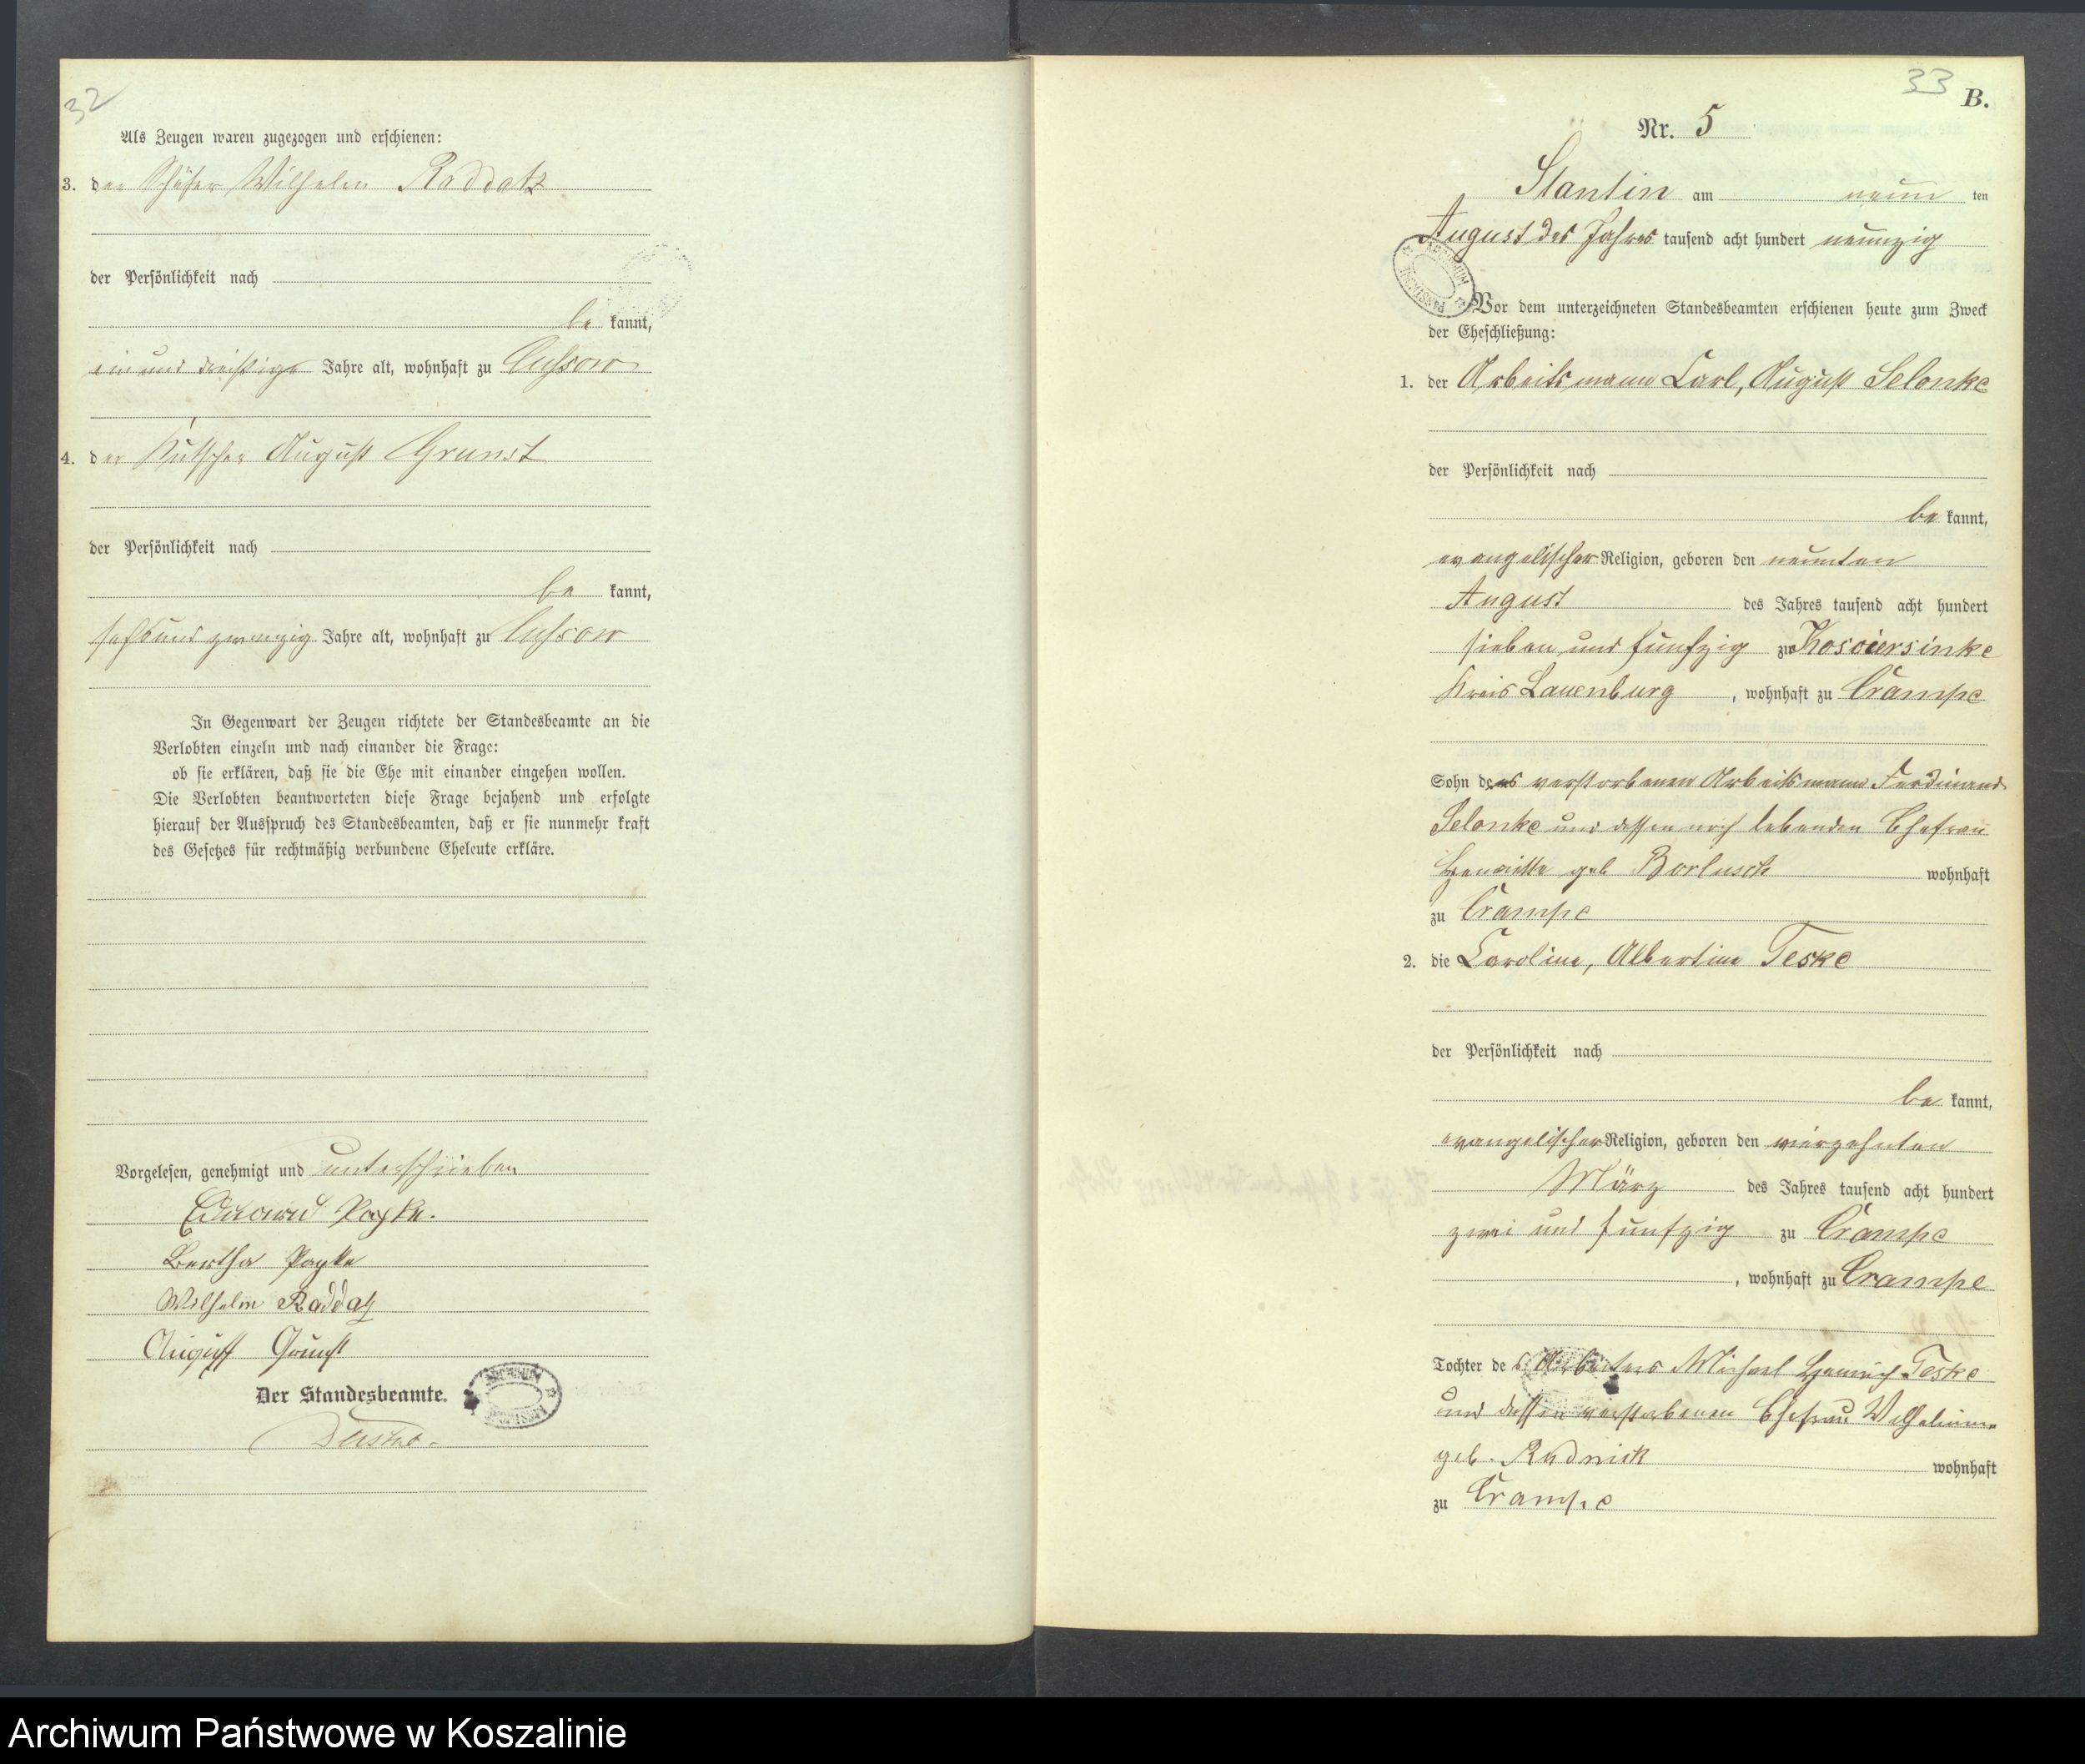 32
Als Zeugen waren zugezogen und erschienen:
3. der Schäfer Wilhelm Raddatz
der Persönlichkeit nach
be kannt,
ein und dreißig Jahre alt, wohnhaft zu Cussow
4. der Kutscher August Grunst
der Persönlichkeit nach
be kannt,
sechsund zwanzig Jahre alt, wohnhaft zu Cussow
In Gegenwart der Zeugen richtete der Standesbeamte an die
Verlobten einzeln und nach einander die Frage:
ob sie erklären, daß sie die Ehe mit einander eingehen wollen.
Die Verlobten beantworteten diese Frage bejahend und erfolgte
hierauf der Ausspruch des Standesbeamten, daß er sie nunmehr kraft
des Gesetzes für rechtmäßig verbundene Eheleute erkläre.
Vorgelesen, genehmigt und unterschrieben
Eduard Papke.
Bertha Papke
Wilhelm Raddatz
August Grunst
Der Standesbeamte.
33
B.
Nr. 5
Stantin am neun ten
August des Jahres tausend acht hundert neunzig
Vor dem unterzeichneten Standesbeamten erschienen heute zum Zweck
der Eheschließung:
1. der Arbeitsmann Carl, August Selonke
der Persönlichkeit nach
be kannt,
evangelischer Religion, geboren den neunten
August des Jahres tausend acht hundert
sieben und funfzig zu
Kreis Lauenburg, wohnhaft zu Crampe
Sohn des verstorbenen Arbeitsmann Ferdinand
Selonke und dessen noch lebenden Ehefrau
Henriette geb Borlusch wohnhaft
zu Crampe
2. die Caroline, Albertine Teske
der Persönlichkeit nach
be kannt,
evangelischer Religion, geboren den vierzehnten
März des Jahres tausend acht hundert
zwei und funfzig zu Crampe
, wohnhaft zu Crampe
Tochter des Arbeiters Michael Heinrich Teske
und dessen verstorbenen Ehefrau Wilhelmine
geb. Rudnick wohnhaft
zu Crampe
Archiwum Państwowe w Koszalinie